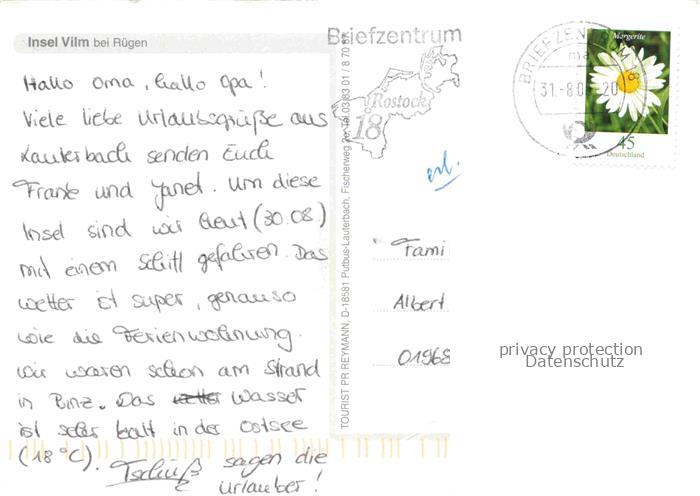 Insel Vilm bei Rügen
Hallo Oma, hallo Opa!
Viele liebe Urlaubsgrüße aus
Lauterbach senden Euch
Frank und Janet. Um diese
Insel sind wir heut (30.08.)
mit einem Schiff gefahren. Das
Wetter ist super, genauso
wie die Ferienwohnung.
Wir waren schon am Strand
in Binz. Das Wasser
ist sehr kalt in der Ostsee
(18°C). Tschüß sagen die
Urlauber!
TOURIST PR REYMANN, D-18581 Putbus-Lauterbach, Fischerweg
Briefzentrum
Rostock
18
BRIEFZEN
31.-8.0
20
Margerite
45
Deutschland
erl.
Fami
Albert
01968
privacy protection
Datenschutz